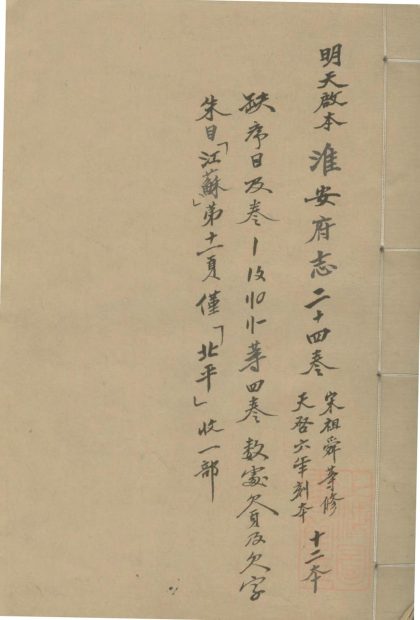 明天啟本淮安府志二十四卷 宋祖舜等修 十二本
天啓六年刻本
缺序目及卷 等四卷 数處欠頁及欠字
朱目「江蘇」第十一頁僅「北平」收一部